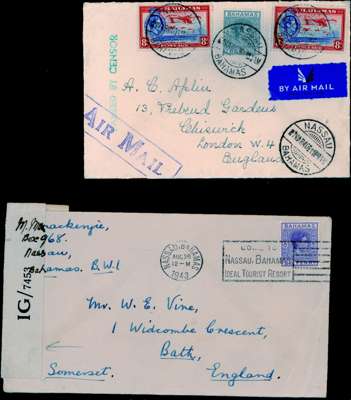 BAHAMAS
8d
BAHAMAS
BAHAMAS
8d
NASSAU
BAHAMAS
BY CENSOR
BY AIR MAIL
A. C.
13,
Chiswick
London W.4
England
AIR MAIL
NASSAU
BAHAMAS
IG/7453
Mackenzie,
Box 968.
Nassau,
Bahamas. B.W.I
NASSAU BAHAMAS
AUG 26
12-M
1943
COME TO
NASSAU, BAHAMAS
IDEAL TOURIST RESORT
BAHAMAS
Mr. W. E. Vine,
1 Widcombe Crescent,
Bath,
Somerset. England.